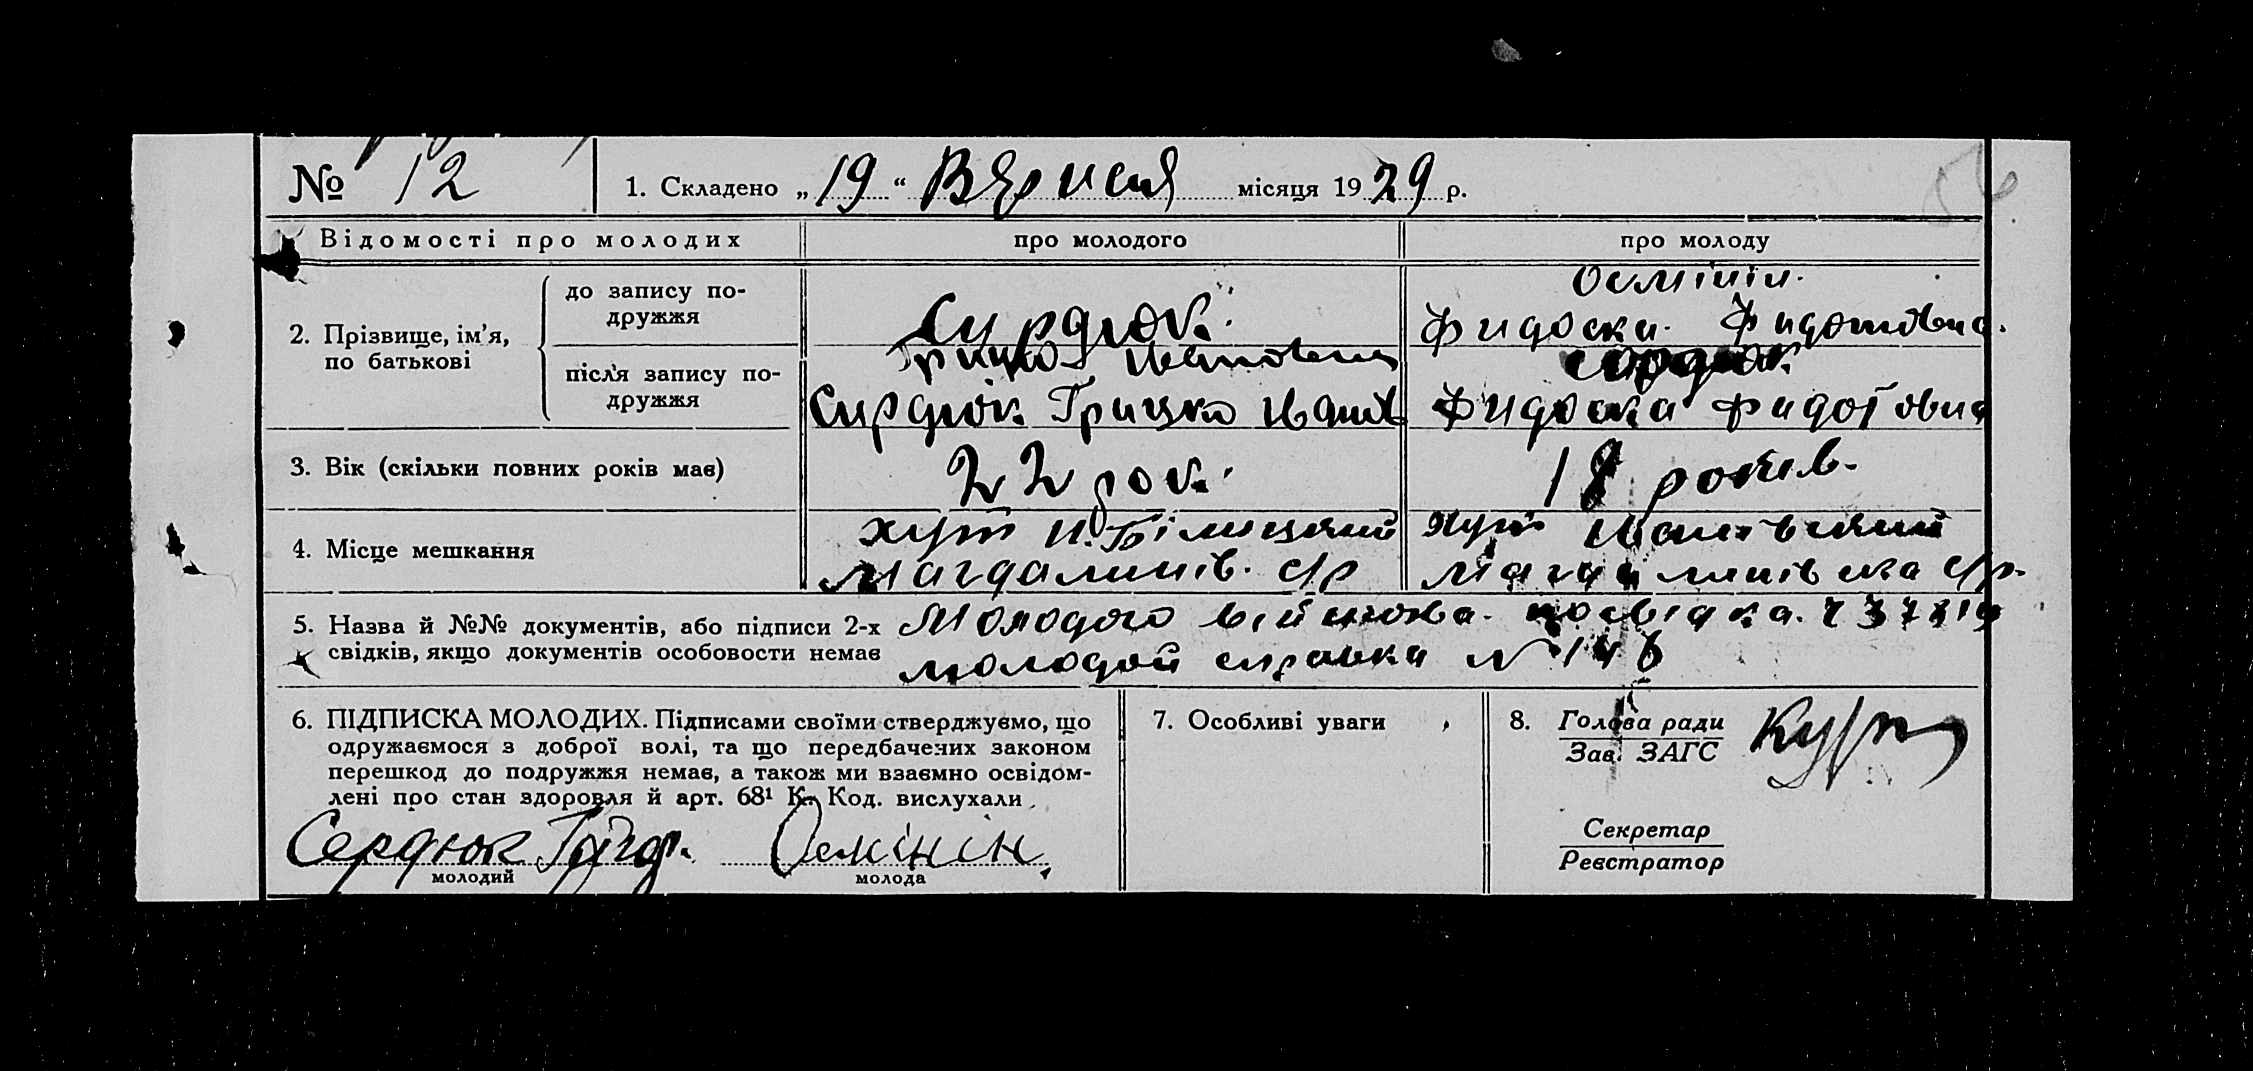 № 12
1. Складено „19“ Вересня місяця 1929 р.
Відомості про молодих
про молодого
про молоду
2. Прізвище, ім’я, по батькові
до запису по-
дружжя
Сирдюк.
Грицко Иванович
Осмінін.
Фидоска. Фидотовна.
після запису по-
дружжя
Сирдюк Грицко Иванов
Сирдюк
Фидоска Фидотовна
3. Вік (скільки повних років має)
22 рок.
18 років.
4. Місце мешкання
хут Н. Білицький
Магдалинів. с/р
хут Иванівський
Магдалинівска с/р.
5. Назва й №№ документів, або підписи 2-х
свідків, якщо документів особовости немає
Молодого війскова. посвідка.
молодой справка N 146
6. ПІДПИСКА МОЛОДИХ. Підписами своїми стверджуємо, що
одружаємося з доброї волі, та що передбачених законом
перешкод до подружжя немає, а також ми взаємно освідом-
лені про стан здоровля й арт. 68¹ К. Код. вислухали
Сердюк
молодий
Осмінін
молода
7. Особливі уваги
8. Голова ради
Зав. ЗАГС
Секретар
Реєстратор